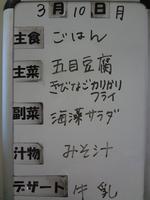 3月10日 月
主食 ごはん
主菜 五目豆腐
きびなごカリカリ
フライ
副菜 海藻サラダ
汁物 みそ汁
デザート 牛乳